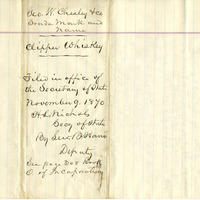 Geo. W. Chesley & Co
Trade Mark and
Name
Clipper Whiskey
Filed in office of
the Secretary of State
November 9. 1870
H. L. Nichols
Secy of State
By Lew. B. Harris
Deputy
See page 308 Book
O of Incorporations